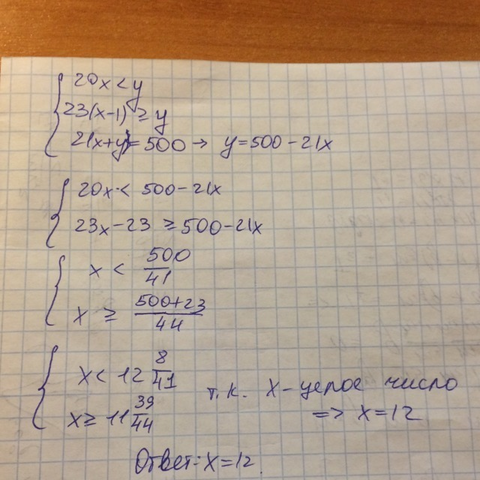 20x < y
23(x-1) ≥ y
21x+y = 500 → y = 500 - 21x
20x < 500 - 21x
23x - 23 ≥ 500 - 21x
x < 500/41
x ≥ (500+23)/44
x < 12 8/41
x ≥ 11 39/44
т.к. x - целое число
=> x = 12
Ответ: x = 12.